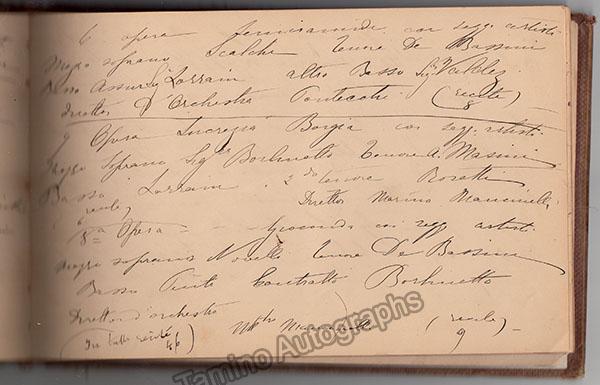 6 opera Semiramide con segg. artisti
Mezzo soprano Scalchi tenore De Bassini
Basso Lorrain altro Basso Sigr Valdes
Direttor D'Orchestra Pontecchi (recite) 8
7 Opera Lucrezia Borgia con segg. artisti.
Mezzo Soprano Sigra Borlinetto tenore A. Masini
Basso Lorrain. 2do tenore Rosetti
6 recite) Direttor Marino Mancinelli
8a Opera Gioconda con segg artisti
mezzo soprano Novelli tenore De Bassini
Basso Contralto Borlinetto
Direttor d'orchestra
(In tutto recite 46 Mstro Mancinelli (recite) 9
Tamino Autographs